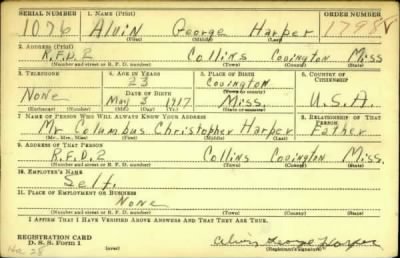 SERIAL NUMBER 1. NAME (Print) ORDER NUMBER
1076 Alvin George Harper 1798
(First) (Middle) (Last)
2. ADDRESS (Print)
R.F.D.2 Collins Covington Miss
(Number and street or R. F. D. number) (Town) (County) (State)
3. TELEPHONE 4. AGE IN YEARS 5. PLACE OF BIRTH 6. COUNTRY OF CITIZENSHIP
23 Covington
DATE OF BIRTH (Town or county)
None May 3 1917 Miss. U.S.A.
(Exchange) (Number) (Mo.) (Day) (Yr.) (State or country)
7. NAME OF PERSON WHO WILL ALWAYS KNOW YOUR ADDRESS 8. RELATIONSHIP OF THAT PERSON
Mr Columbus Christopher Harper Father
(Mr., Mrs., Miss) (First) (Middle) (Last)
9. ADDRESS OF THAT PERSON
R.F.D.2 Collins Covington Miss.
(Number and street or R. F. D. number) (Town) (County) (State)
10. EMPLOYER'S NAME
Self.
11. PLACE OF EMPLOYMENT OR BUSINESS
None
(Number and street or R. F. D. number) (Town) (County) (State)
I AFFIRM THAT I HAVE VERIFIED ABOVE ANSWERS AND THAT THEY ARE TRUE.
REGISTRATION CARD
D. S. S. Form 1 Alvin George Harper
(over) (Registrant's signature)
28